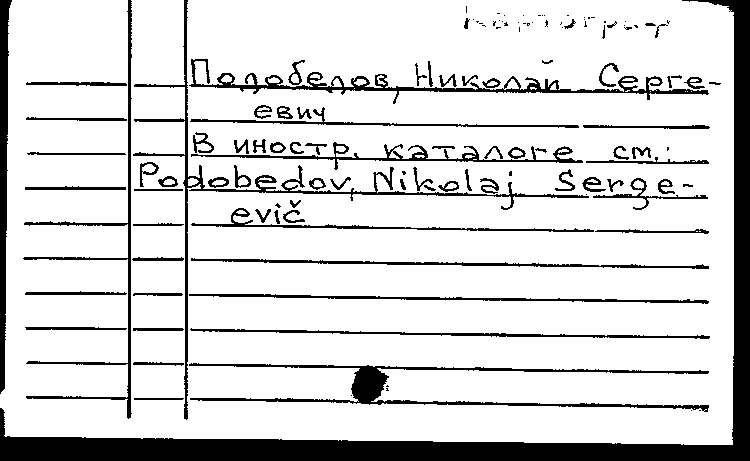 Картограф
Подобедов, Николай Серге-
евич
В иностр. каталоге см.:
Podobedov, Nikolaj Serge-
evič